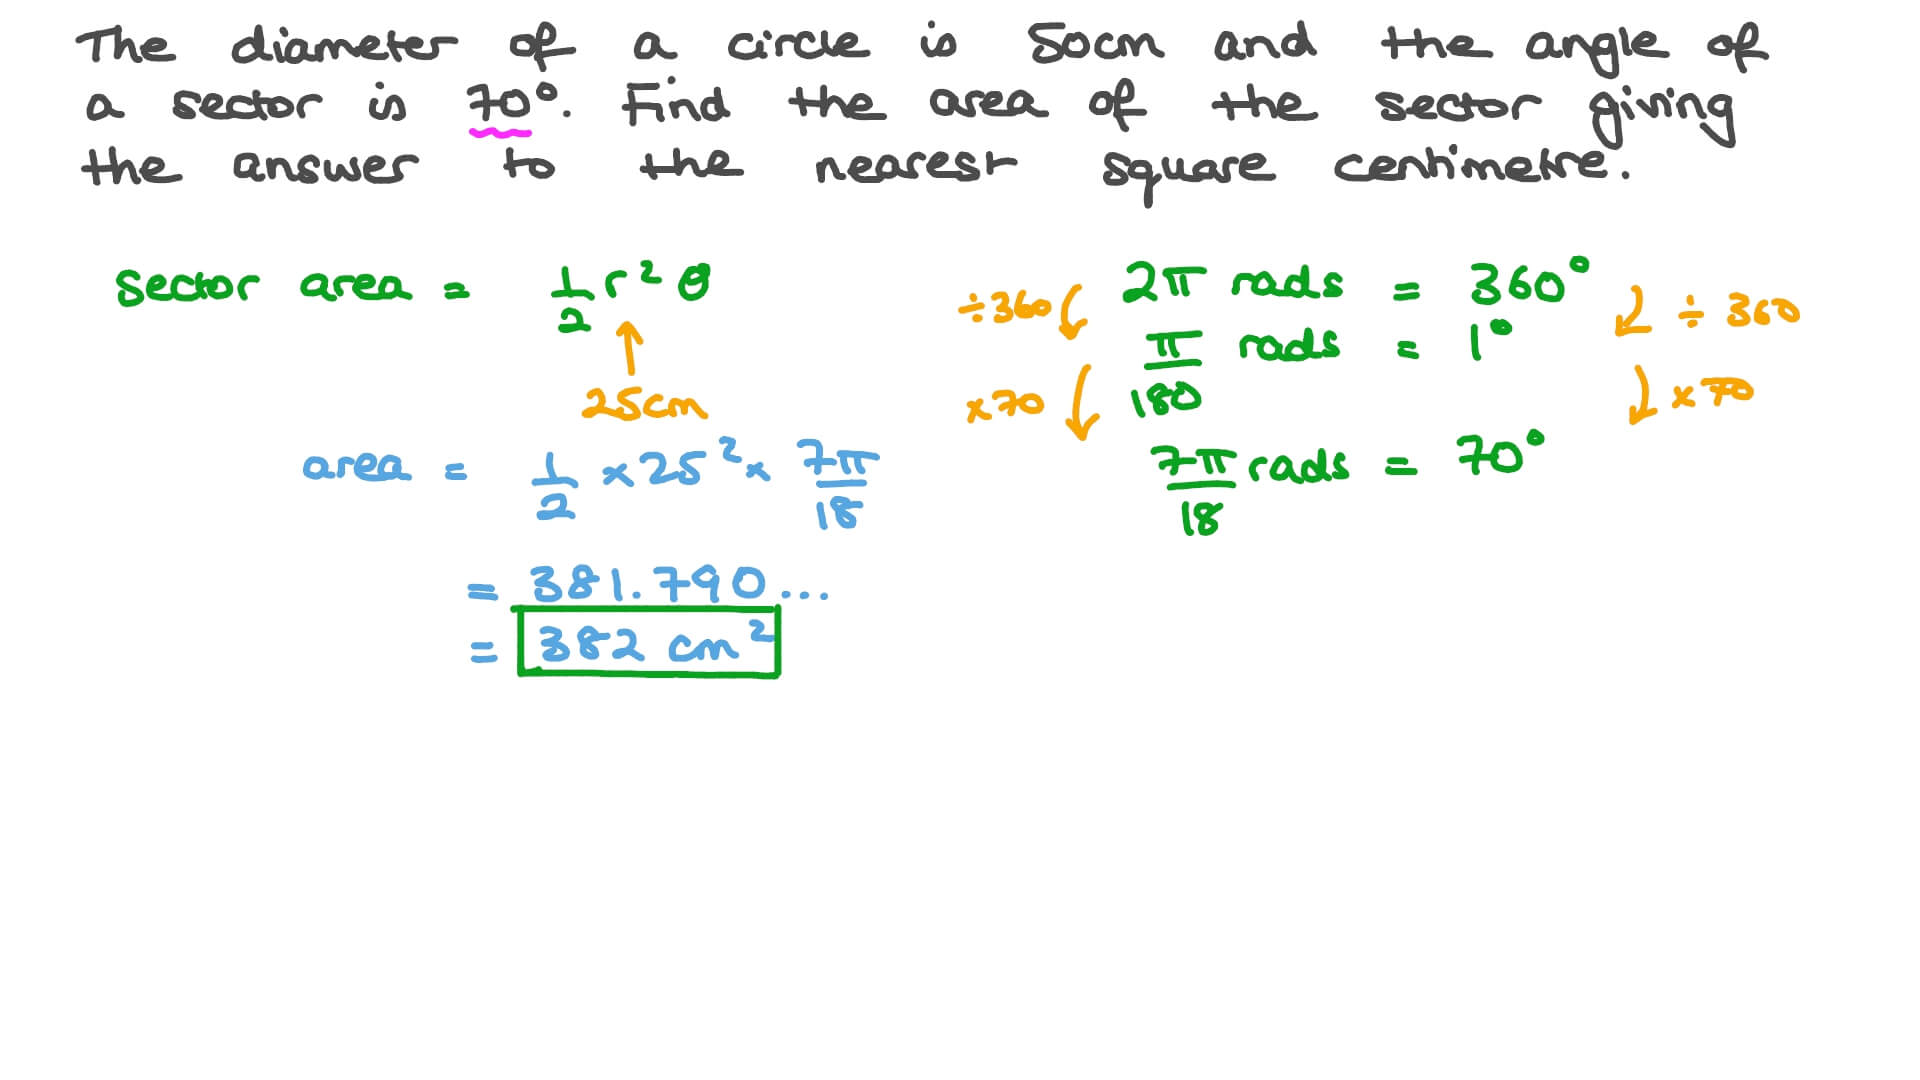 The diameter of a circle is 50cm and the angle of
a sector is 70°. Find the area of the sector giving
the answer to the nearest square centimetre.
sector area = 1/2 r² θ
25cm
area = 1/2 × 25² × 7π/18
= 381.790...
= 382 cm²
÷360 2π rads = 360° ÷ 360
π/180 rads = 1°
×70 ×70
7π/18 rads = 70°